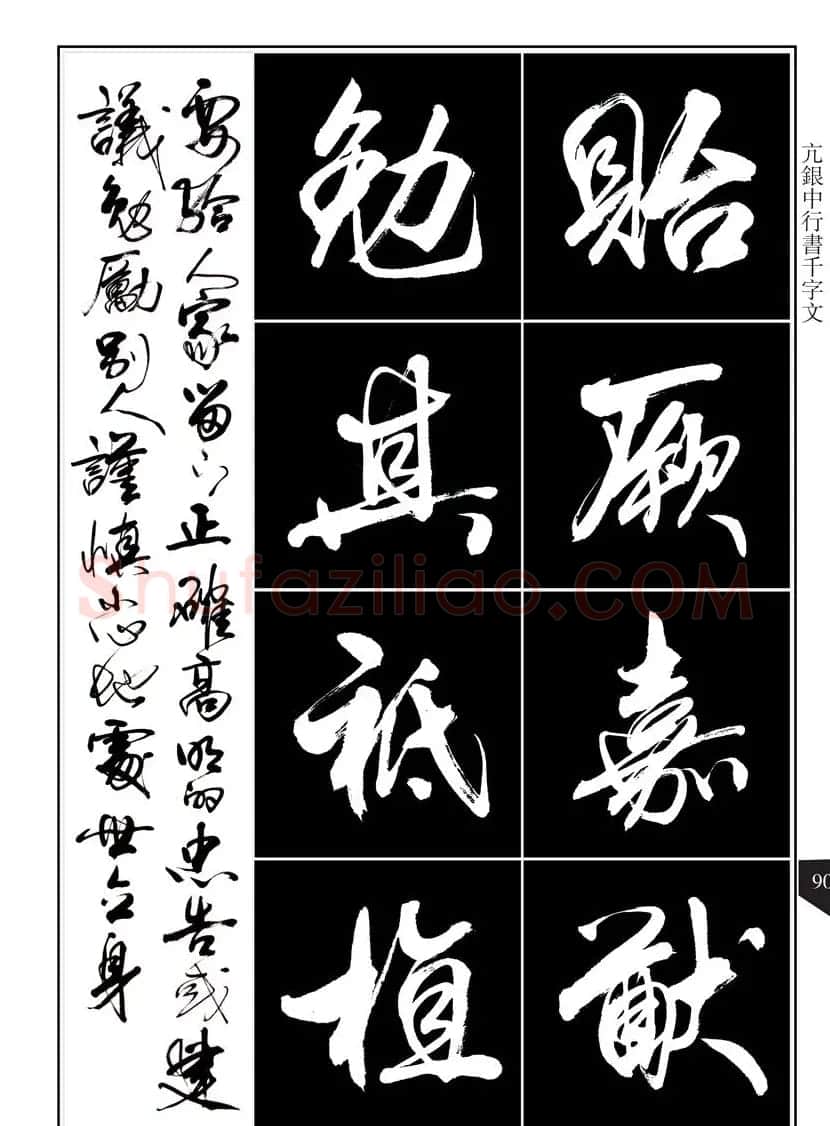 亢銀中行書千字文
貽厥嘉猷
勉其祗植
要給人家留下正確高明的忠告或建
議勉勵別人謹慎小心地處世立身
90
Shufaziliao.COM